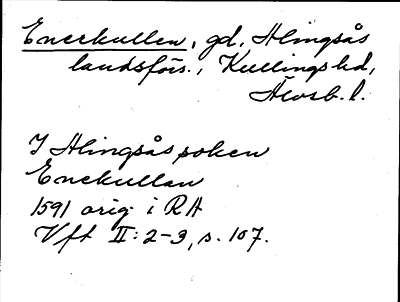 Enerkullen, gd, Alingsås
landsförs., Kullings hd,
Älvsb. l.
I Alingsås soken
Enekullan
1591 orig i RA
Vft II: 2-3, s. 107.